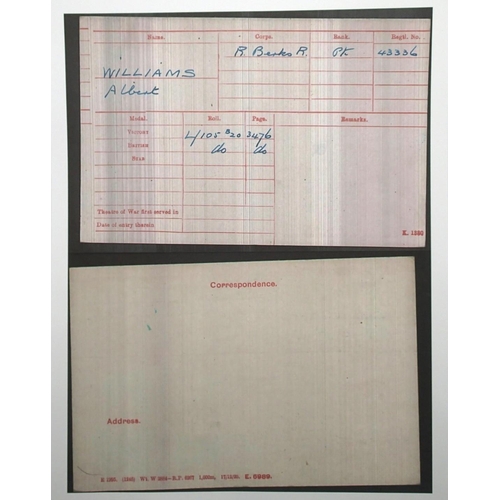 Name. Corps. Rank. Regtl. No.
R. Berks R. Pte 43336
WILLIAMS
Albert
Medal. Roll. Page. Remarks.
Victory L/105 B20 3476
British do do
Star
Theatre of War first served in
Date of entry therein
K. 1380
Correspondence.
Address.
E. 5909.